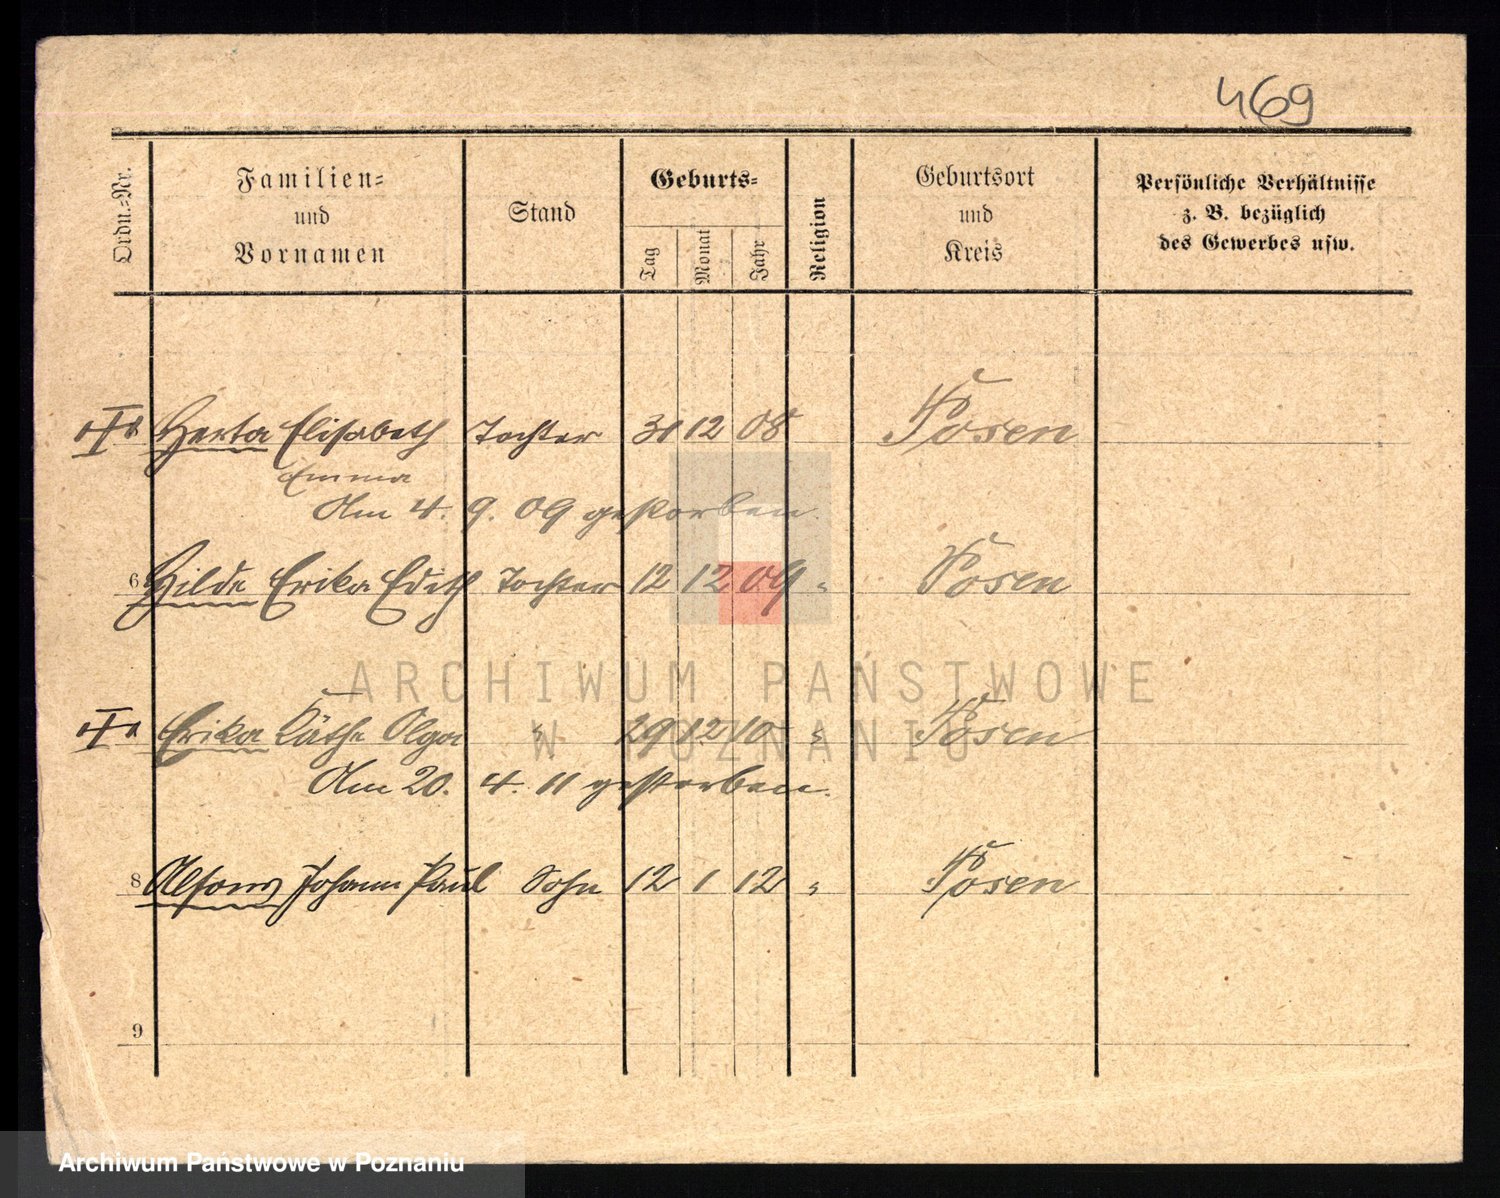 469
Ordn.=Nr.
Familien=
und
Vornamen
Stand
Geburts=
Tag
Monat
Jahr
Religion
Geburtsort
und
Kreis
Persönliche Verhältnisse
z. B. bezüglich
des Gewerbes usw.
Herta Elisabeth Tochter 31 12 08 Posen
Emma
Am 4. 9. 09 gestorben.
6 Hilde Erika Edith Tochter 12 12 09 " Posen
ARCHIWUM PAŃSTWOWE
W POZNANIU
Erika Käthe Olga " 29 12 10 " Posen
Am 20. 4. 11 gestorben.
8 Alfons Johann Paul Sohn 12 1 12 " Posen
9
Archiwum Państwowe w Poznaniu